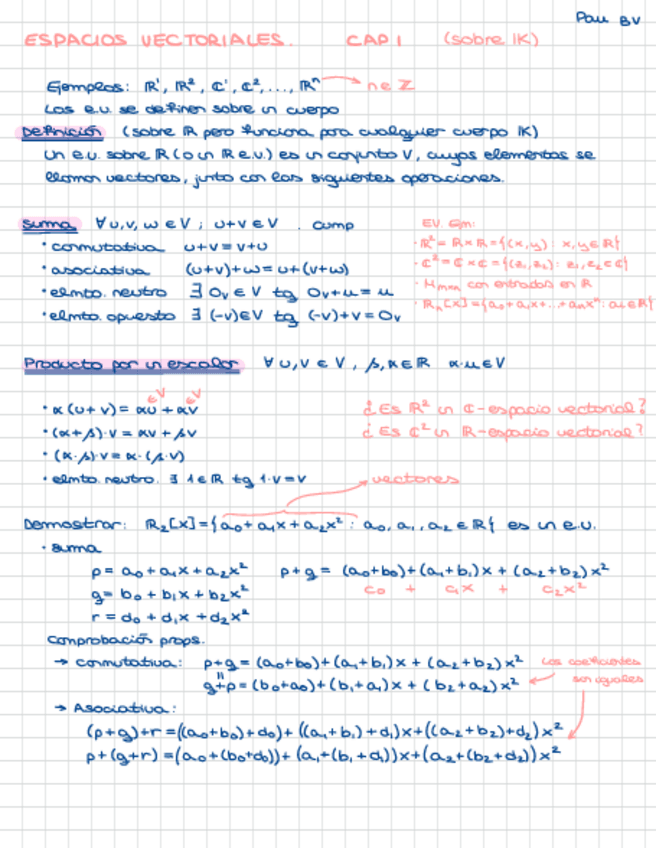 Pau BV
ESPACIOS VECTORIALES. CAP 1 (sobre IK)
Ejemplos: ℝ¹, ℝ², ℂ¹, ℂ², ..., ℝⁿ → n ∈ ℤ
Los e.v. se definen sobre un cuerpo
Definición (sobre ℝ pero funciona para cualquier cuerpo IK)
Un e.v. sobre ℝ (o un ℝ e.v.) es un conjunto V, cuyos elementos se
llaman vectores, junto con las siguientes operaciones.
Suma ∀ u, v, w ∈ V ; u+v ∈ V . cump
· conmutativa u+v = v+u
· asociativa (u+v)+w = u+(v+w)
· elmto. neutro ∃ 0ᵥ ∈ V tq 0ᵥ+u = u
· elmto. opuesto ∃ (-v) ∈ V tq (-v)+v = 0ᵥ
EV. Em:
· ℝ² = ℝ × ℝ = {(x,y) : x,y ∈ ℝ}
· ℂ² = ℂ × ℂ = {(z₁,z₂) : z₁,z₂ ∈ ℂ}
· Mₘₓₙ con entradas en ℝ
· ℝₙ[x] = {a₀+a₁x+...+aₙxⁿ : aᵢ ∈ ℝ}
Producto por un escalar ∀ u, v ∈ V , β, α ∈ ℝ α·u ∈ V
∈V ∈V
· α(u+v) = αu + αv
· (α+β)·v = αv + βv
· (α·β)·v = α·(β·v)
· elmto. neutro. ∃ 1 ∈ ℝ tq 1·v = v
¿Es ℝ² un ℂ-espacio vectorial?
¿Es ℂ² un ℝ-espacio vectorial?
vectores
Demostrar: ℝ₂[x] = {a₀+a₁x+a₂x² : a₀, a₁, a₂ ∈ ℝ} es un e.v.
· suma
p = a₀+a₁x+a₂x² p+q = (a₀+b₀)+(a₁+b₁)x + (a₂+b₂)x²
q = b₀+b₁x+b₂x² c₀ + c₁x + c₂x²
r = d₀+d₁x+d₂x²
Comprobación props.
→ conmutativa: p+q = (a₀+b₀)+(a₁+b₁)x + (a₂+b₂)x² Los coeficientes
=
q+p = (b₀+a₀)+(b₁+a₁)x + (b₂+a₂)x² ← son iguales
→ Asociativa:
(p+q)+r = ((a₀+b₀)+d₀)+((a₁+b₁)+d₁)x+((a₂+b₂)+d₂)x²
p+(q+r) = (a₀+(b₀+d₀))+(a₁+(b₁+d₁))x+(a₂+(b₂+d₂))x²